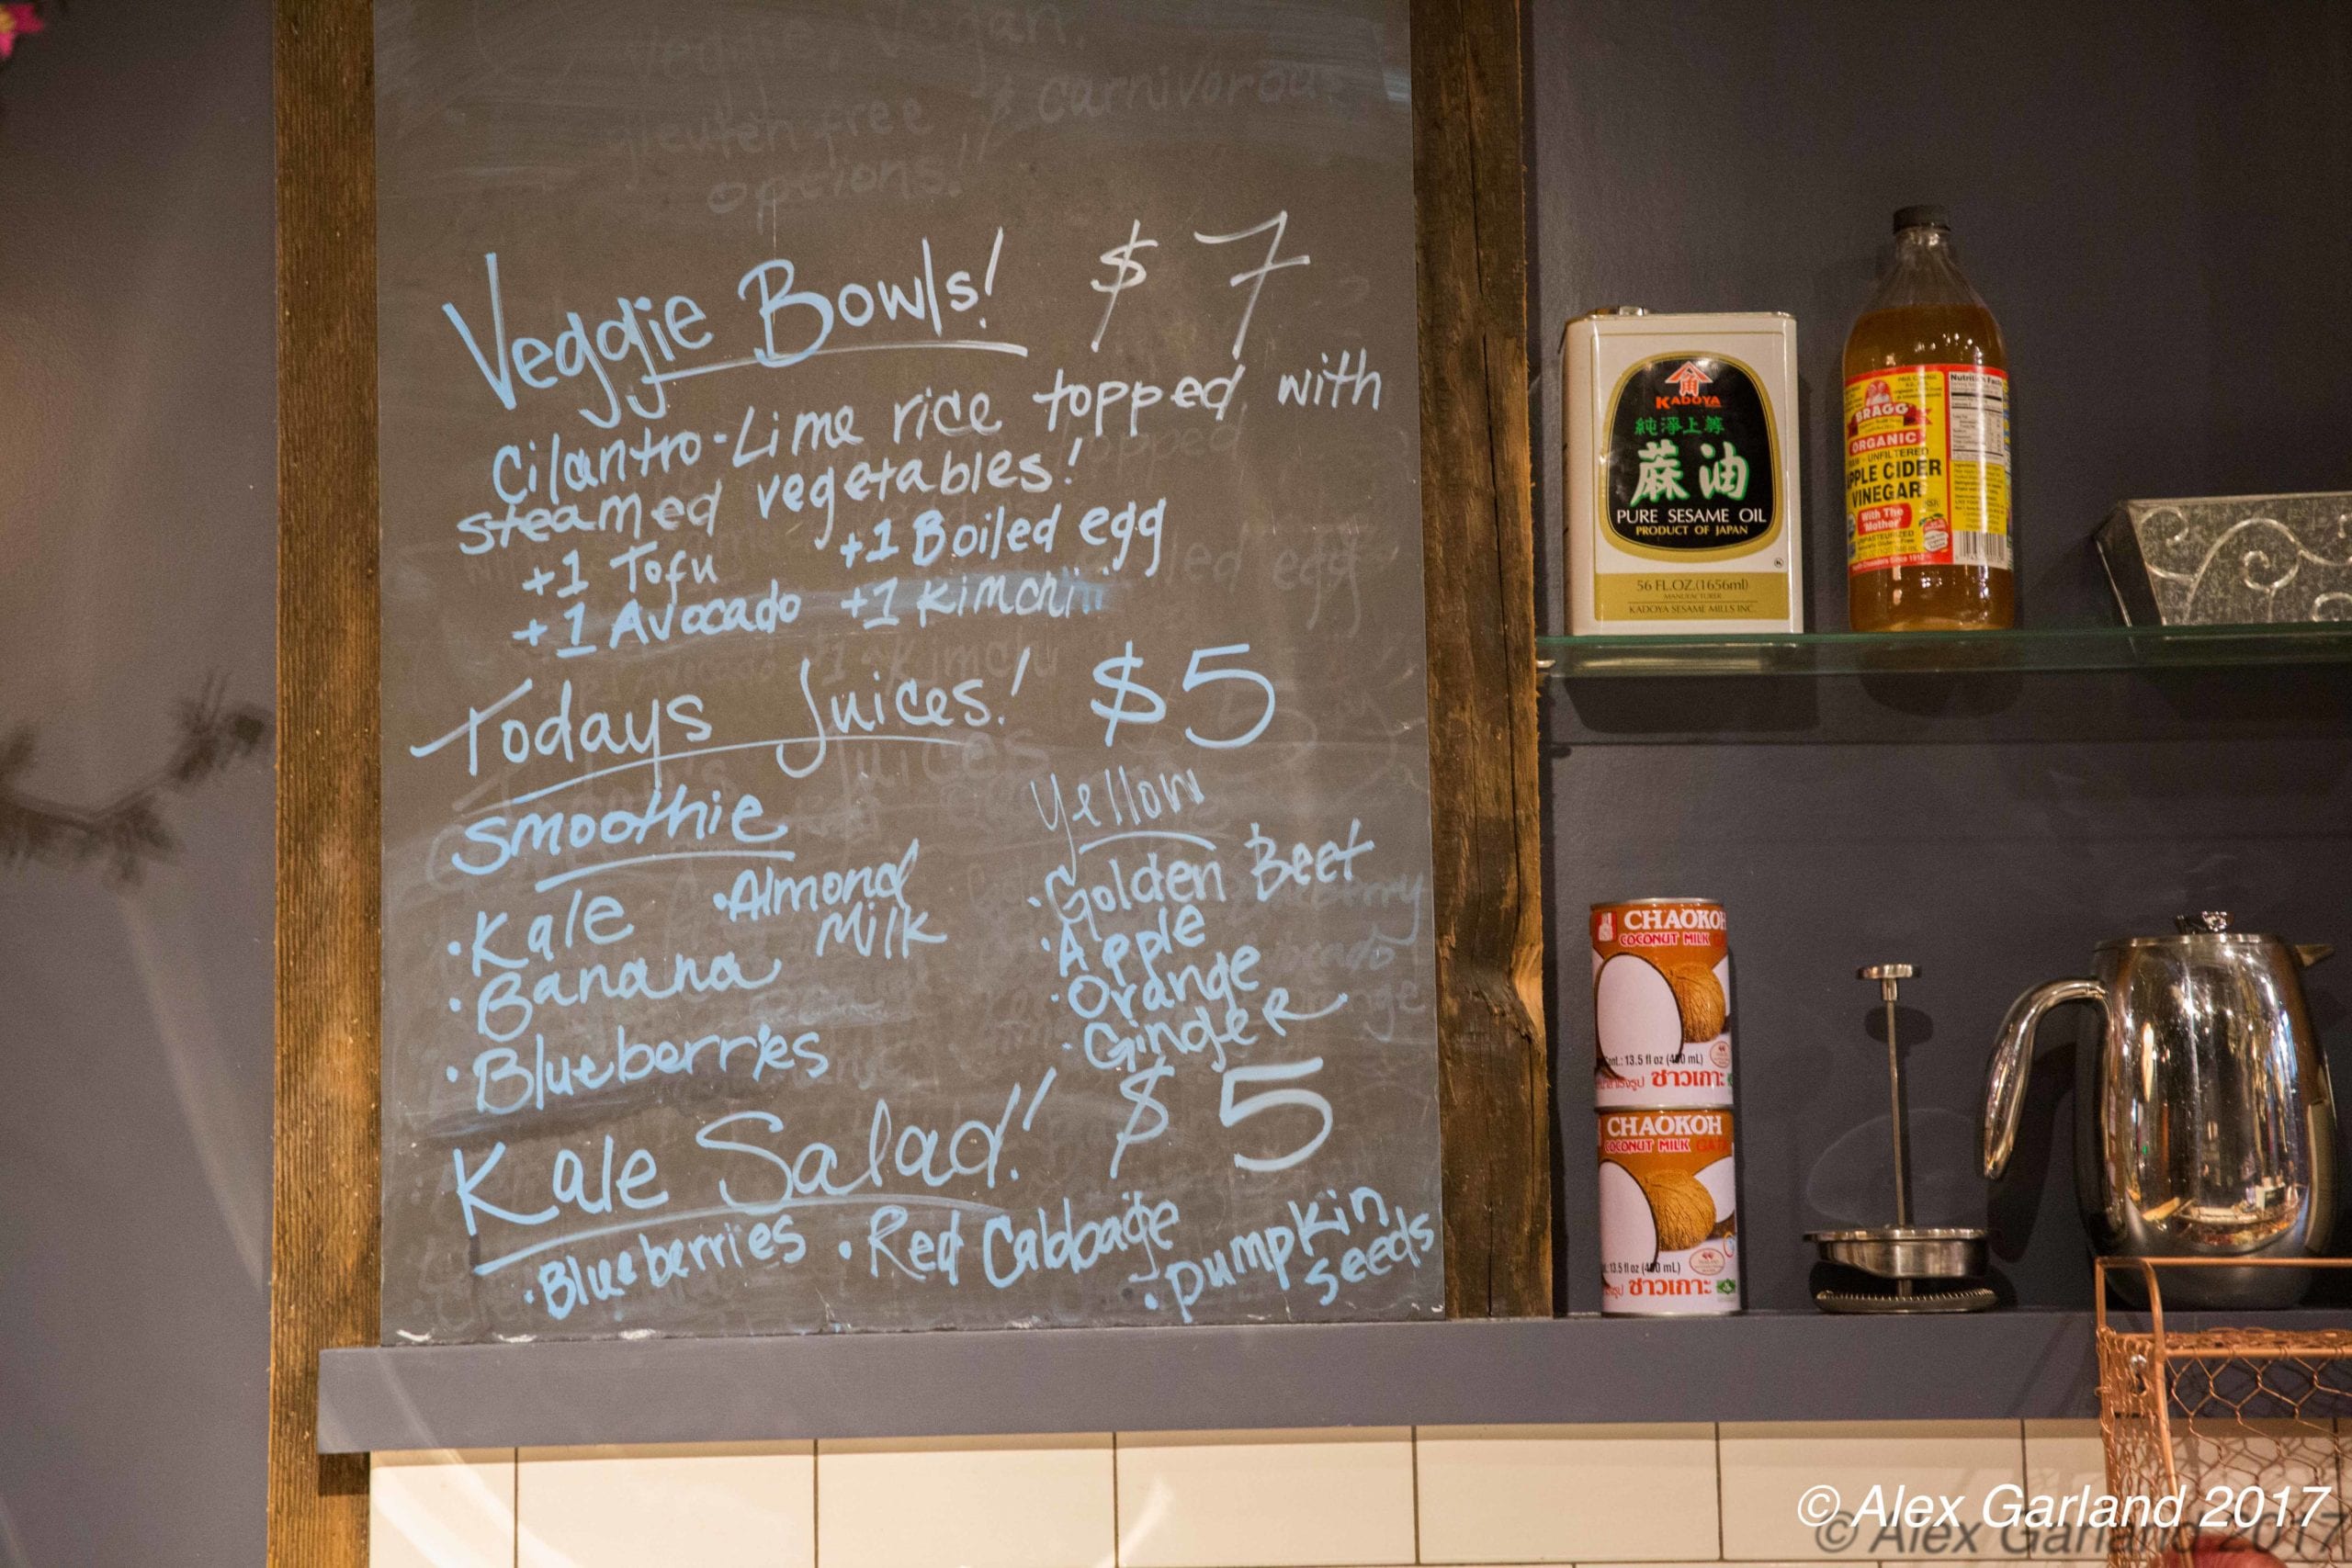 veggie, vegan,
gleuten free & carnivorous
options!
Veggie Bowls! $7
Cilantro-Lime rice topped with
steamed vegetables!
+1 Tofu +1 Boiled egg
+1 Avocado +1 Kimchi
Todays Juices! $5
Smoothie
• Kale • Almond Milk
• Banana
• Blueberries
Yellow
• Golden Beet
• Apple
• Orange
• Ginger
Kale Salad! $5
• Blueberries • Red Cabbage • Pumpkin seeds
KADOYA
純淨上等
蔴油
PURE SESAME OIL
PRODUCT OF JAPAN
56 FL.OZ.(1656ml)
MANUFACTURER
KADOYA SESAME MILLS INC.
Nutrition Facts
BRAGG
ORGANIC
RAW - UNFILTERED
APPLE CIDER
VINEGAR
With The
'Mother'
CHAOKOH
COCONUT MILK
13.5 fl oz (400 mL)
ชาวเกาะ
CHAOKOH
COCONUT MILK
13.5 fl oz (400 mL)
ชาวเกาะ
© Alex Garland 2017
© Alex Garland 2017